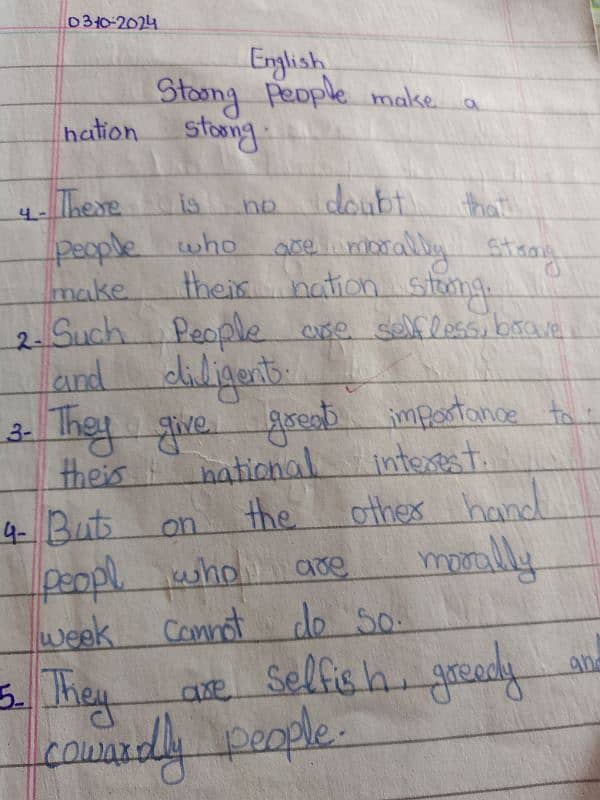 03-10-2024
English
Strong People make a
nation strong.
1- There is no doubt that
people who are morally strong
make their nation strong.
2- Such People are selfless, brave
and diligent.
3- They give great importance to
their national interest.
4- But on the other hand
peopl who are morally
week cannot do so.
5- They are selfish, greedy and
cowardly people.